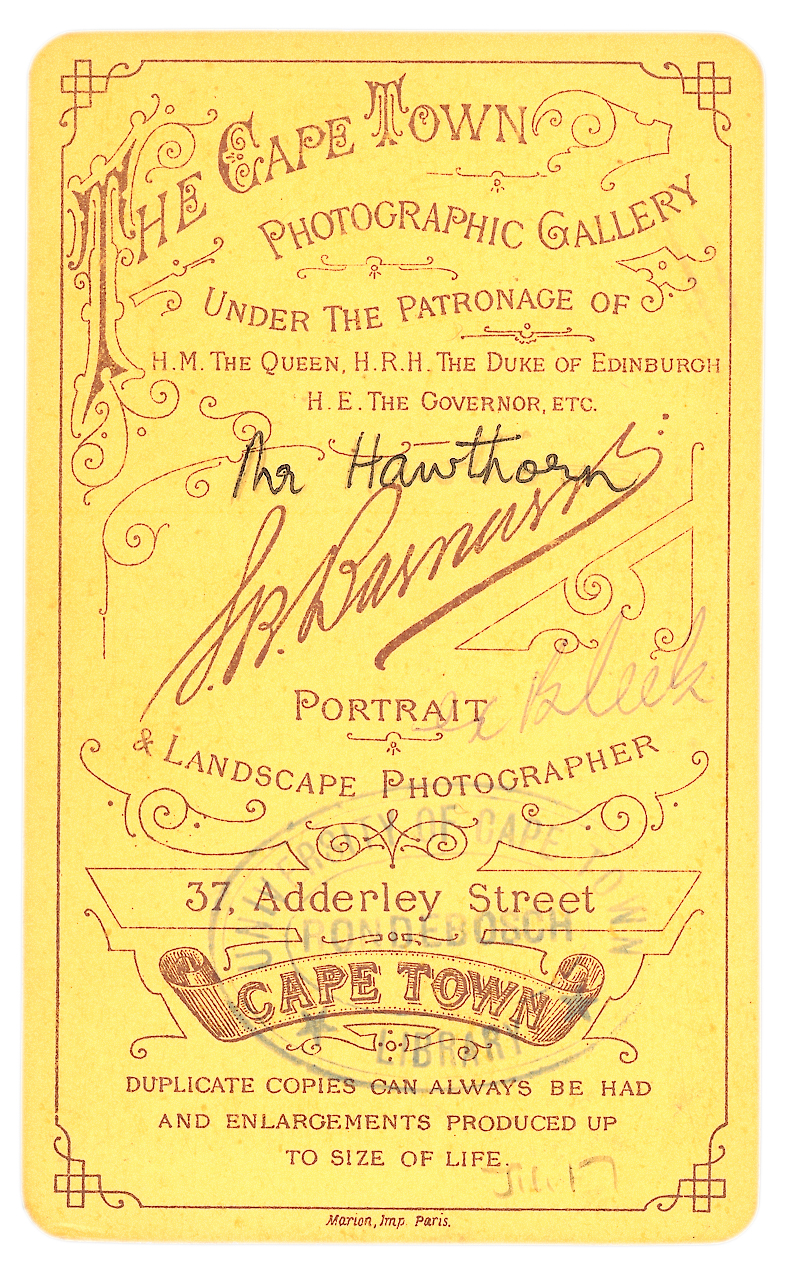 THE CAPE TOWN
PHOTOGRAPHIC GALLERY
UNDER THE PATRONAGE OF
H.M. THE QUEEN, H.R.H. THE DUKE OF EDINBURGH
H.E. THE GOVERNOR, ETC.
Mr Hawthorn
S.B. Barnard
PORTRAIT
ex Bleek
& LANDSCAPE PHOTOGRAPHER
UNIVERSITY OF CAPE TOWN
37, Adderley Street
RONDEBOSCH
CAPE TOWN
LIBRARY
DUPLICATE COPIES CAN ALWAYS BE HAD
AND ENLARGEMENTS PRODUCED UP
TO SIZE OF LIFE.
Marion, Imp. Paris.